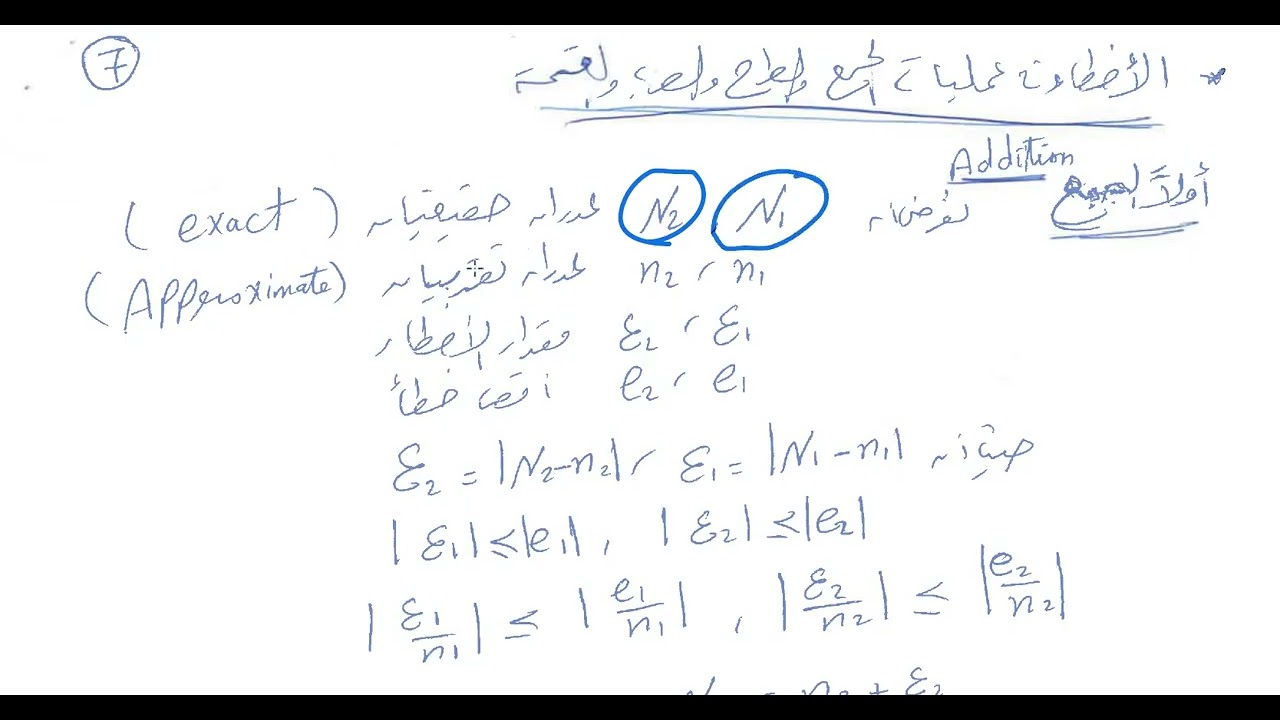 7
* الأخطاء في عمليات الجمع والطرح والضرب والقسمة
أولاً الجمع Addition
نفرض ان N1 N2 عددان حقيقيان (exact)
n1 , n2 عددان تقريبيان (Approximate)
ε1 , ε2 مقدار الأخطاء
e1 , e2 اقصى خطأ
حيث ان ε1 = |N1 - n1| , ε2 = |N2 - n2|
|ε1| ≤ |e1| , |ε2| ≤ |e2|
|ε1/n1| ≤ |e1/n1| , |ε2/n2| ≤ |e2/n2|
= n2 + ε2